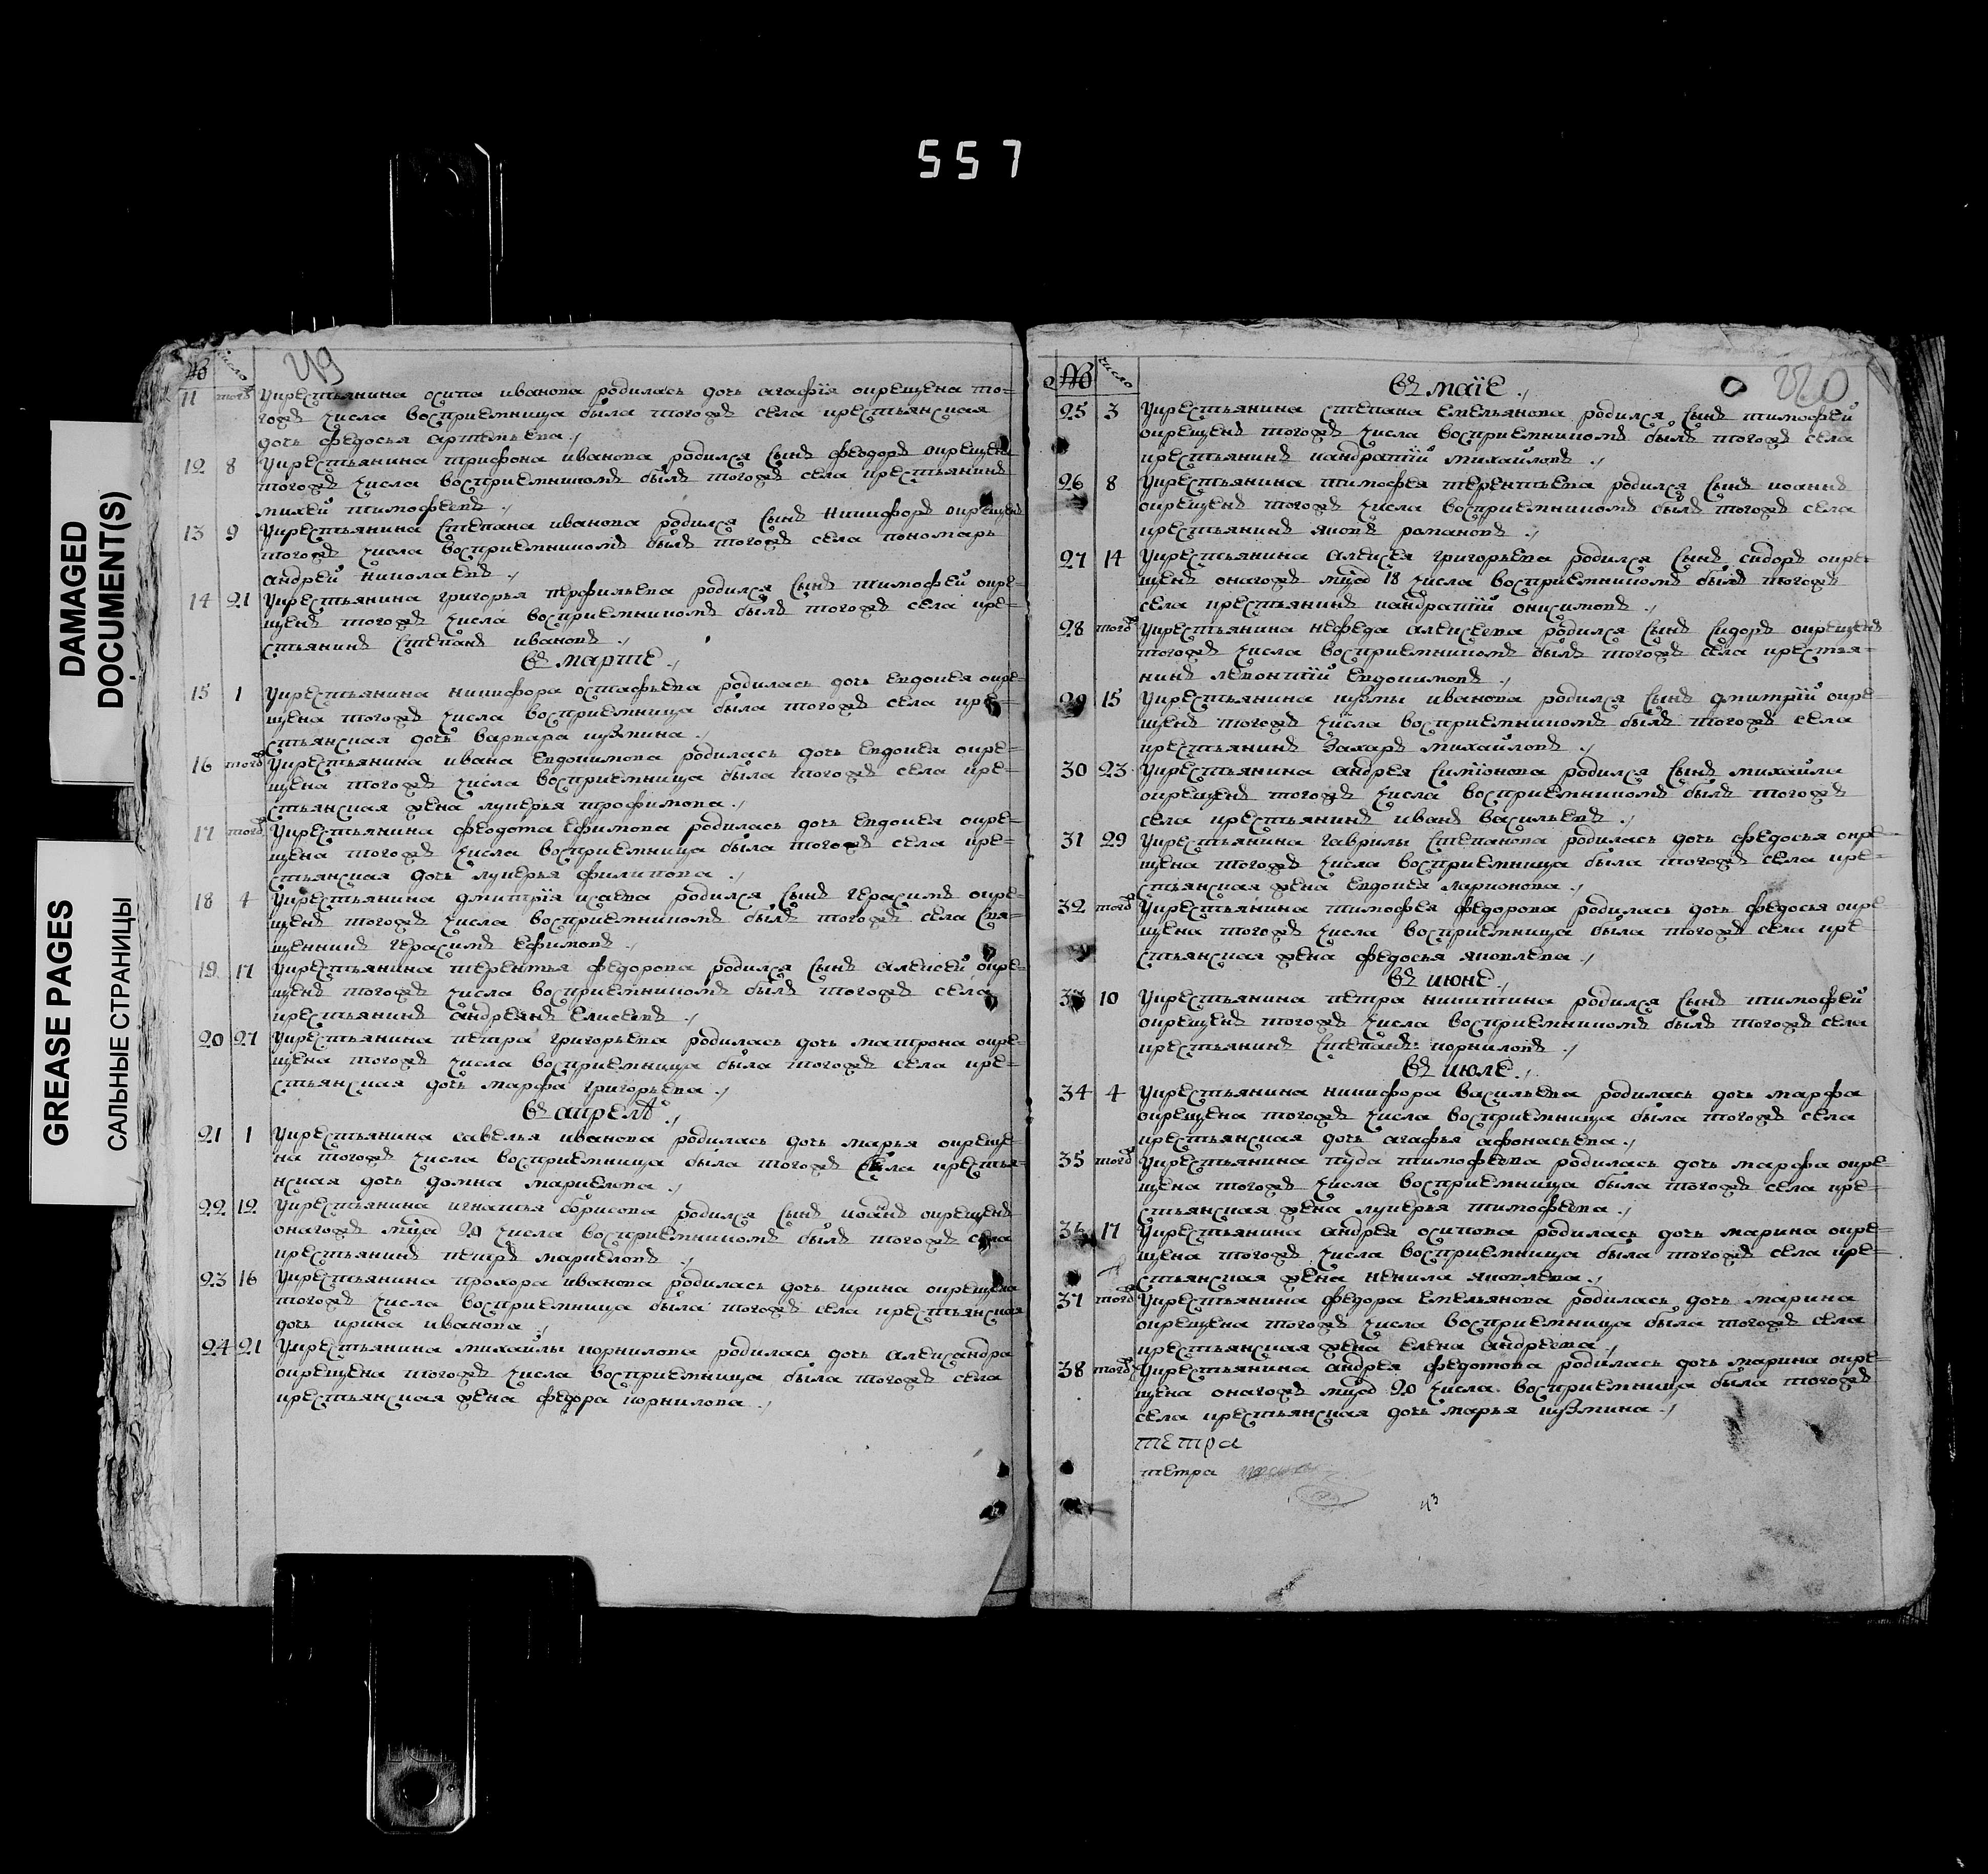 557
DAMAGED
DOCUMENT(S)
GREASE PAGES
САЛЬНЫЕ СТРАНИЦЫ
№ число
11 тогоѫ Укрестьянина осипа иванова родилась дочь агафïя окрещена то=
гожъ числа восприемница была тогожъ села крестьянская
дочь федосья артемьева
12 8 Укрестьянина трифона иванова родился сынъ феодоръ окрещенъ
тогожъ числа восприемникомъ былъ тогожъ села крестьянинъ
михей тимофеевъ
13 9 Укрестьянина степана иванова родился сынъ никифоръ окрещенъ
тогожъ числа восприемникомъ былъ тогожъ села пономарь
андрей николаевъ
14 21 Укрестьянина григорья перфильева родился сынъ тимофей окре=
щенъ тогожъ числа восприемникомъ былъ тогожъ села кре=
стьянинъ степанъ ивановъ
въ марте
15 1 Укрестьянина никифора остафьева родилась дочь евдокея окре=
щена тогожъ числа восприемница была тогожъ села кре=
стьянская дочь варвара кузмина
16 тогож Укрестьянина ивана евдокимова родилась дочь евдокея окре=
щена тогожъ числа восприемница была тогожъ села кре=
стьянская жена лукерья трофимова
17 тогож Укрестьянина феодота ефимова родилась дочь евдокея окре=
щена тогожъ числа восприемница была тогожъ села кре=
стьянская дочь лукерья филипова
18 4 Укрестьянина дмитрïя исаева родился сынъ герасимъ окре=
щенъ тогожъ числа восприемникомъ былъ тогожъ села свя=
щенникъ герасимъ ефимовъ
19 17 Укрестьянина терентья федорова родился сынъ алексей окре=
щенъ тогожъ числа восприемникомъ былъ тогожъ села
крестьянинъ андреянъ елисеевъ
20 27 Укрестьянина петра григорьева родилась дочь матрона окре=
щена тогожъ числа восприемница была тогожъ села кре=
стьянская дочь марфа григорьева
въ апрелѣ
21 1 Укрестьянина савелья иванова родилась дочь марья окреще=
на тогожъ числа восприемница была тогожъ села крестья=
нская дочь домна маркелова
22 12 Укрестьянина игнатья борисова родился сынъ иоанъ окрещенъ
онагожъ мцад 20 числа восприемникомъ былъ тогожъ села
крестьянинъ петръ маркеловъ
23 16 Укрестьянина прохора иванова родилась дочь ирина окрещена
тогожъ числа восприемница была тогожъ села крестьянская
дочь ирина иванова
24 21 Укрестьянина михайлы корнилова родилась дочь александра
окрещена тогожъ числа восприемница была тогожъ села
крестьянская жена федора корнилова
№ число
220
въ маïе
25 3 Укрестьянина степана емельянова родился сынъ тимофей
окрещенъ тогожъ числа восприемникомъ былъ тогожъ села
крестьянинъ кандратïй михайловъ
26 8 Укрестьянина тимофея терентьева родился сынъ иоаннъ
окрещенъ тогожъ числа восприемникомъ былъ тогожъ села
крестьянинъ яковъ романовъ
27 14 Укрестьянина алексея григорьева родился сынъ сидоръ окре=
щенъ онагожъ мцад 18 числа восприемникомъ былъ тогожъ
села крестьянинъ кандратïй онисимовъ
28 тогож Укрестьянина нефеда алексеева родился сынъ сидоръ окрещенъ
тогожъ числа восприемникомъ былъ тогожъ села крестья=
нинъ левонтïй евдокимовъ
29 15 Укрестьянина кузмы иванова родился сынъ дмитрïй окре=
щенъ тогожъ числа восприемникомъ былъ тогожъ села
крестьянинъ захаръ михайловъ
30 23 Укрестьянина андрея симïонова родился сынъ михайла
окрещенъ тогожъ числа восприемникомъ былъ тогожъ
села крестьянинъ иванъ васильевъ
31 29 Укрестьянина гаврилы степанова родилась дочь федосья окре=
щена тогожъ числа восприемница была тогожъ села кре=
стьянская жена евдокея ларионова
32 тогож Укрестьянина тимофея федорова родилась дочь федосья окре
щена тогожъ числа восприемница была тогожъ села кре
стьянская жена федосья яковлева
въ июне
33 10 Укрестьянина петра никитина родился сынъ тимофей
окрещенъ тогожъ числа восприемникомъ былъ тогожъ села
крестьянинъ степанъ корниловъ
въ июле
34 4 Укрестьянина никифора васильева родилась дочь марфа
окрещена тогожъ числа восприемница была тогожъ села
крестьянская дочь агафья афонасьева
35 тогож Укрестьянина пуда тимофеева родилась дочь марфа окре=
щена тогожъ числа восприемница была тогожъ села кре=
стьянская жена лукерья тимофеева
36 17 Укрестьянина андрея осипова родилась дочь марина окре=
щена тогожъ числа восприемница была тогожъ села кре=
стьянская жена ненила яковлева
37 тогож Укрестьянина федора емельянова родилась дочь марина
окрещена тогожъ числа восприемница была тогожъ села
крестьянская жена елена андреева
38 тогож Укрестьянина андрея федотова родилась дочь марина окре=
щена онагожъ мцад 20 числа восприемница была тогожъ
села крестьянская дочь марья кузмина
петра
петра